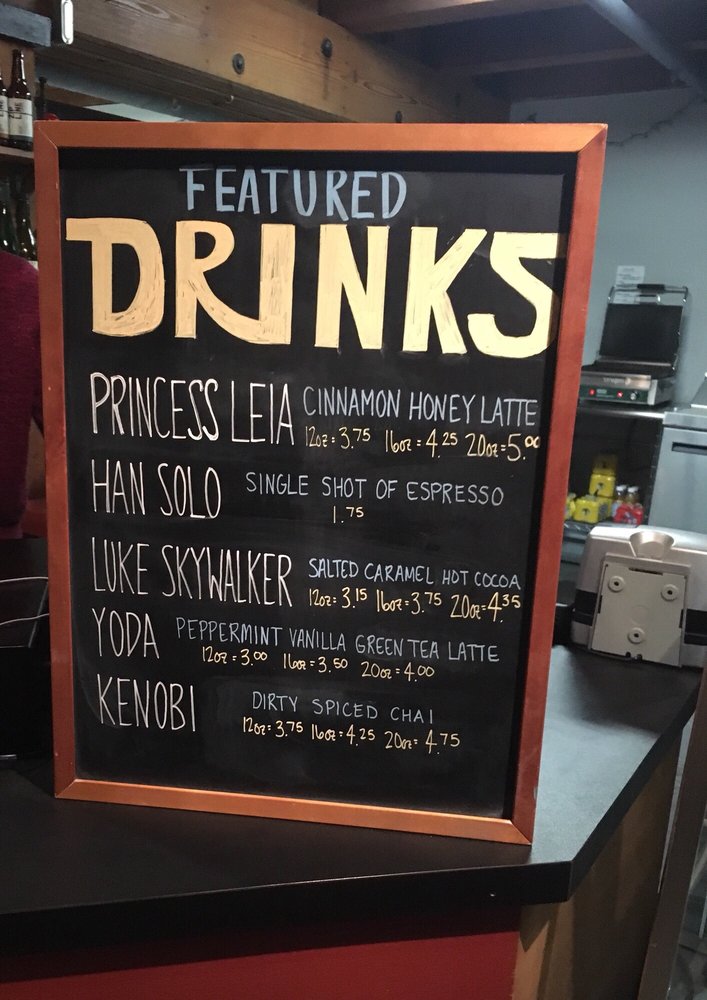 FEATURED
DRINKS
PRINCESS LEIA CINNAMON HONEY LATTE
12oz = 3.75 16oz = 4.25 20oz = 5.00
HAN SOLO SINGLE SHOT OF ESPRESSO
1.75
LUKE SKYWALKER SALTED CARAMEL HOT COCOA
12oz = 3.15 16oz = 3.75 20oz = 4.35
YODA PEPPERMINT VANILLA GREEN TEA LATTE
12oz = 3.00 16oz = 3.50 20oz = 4.00
KENOBI DIRTY SPICED CHAI
12oz = 3.75 16oz = 4.25 20oz = 4.75